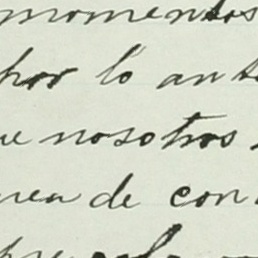 momentos
por lo ant
ue nosotros
nea de con